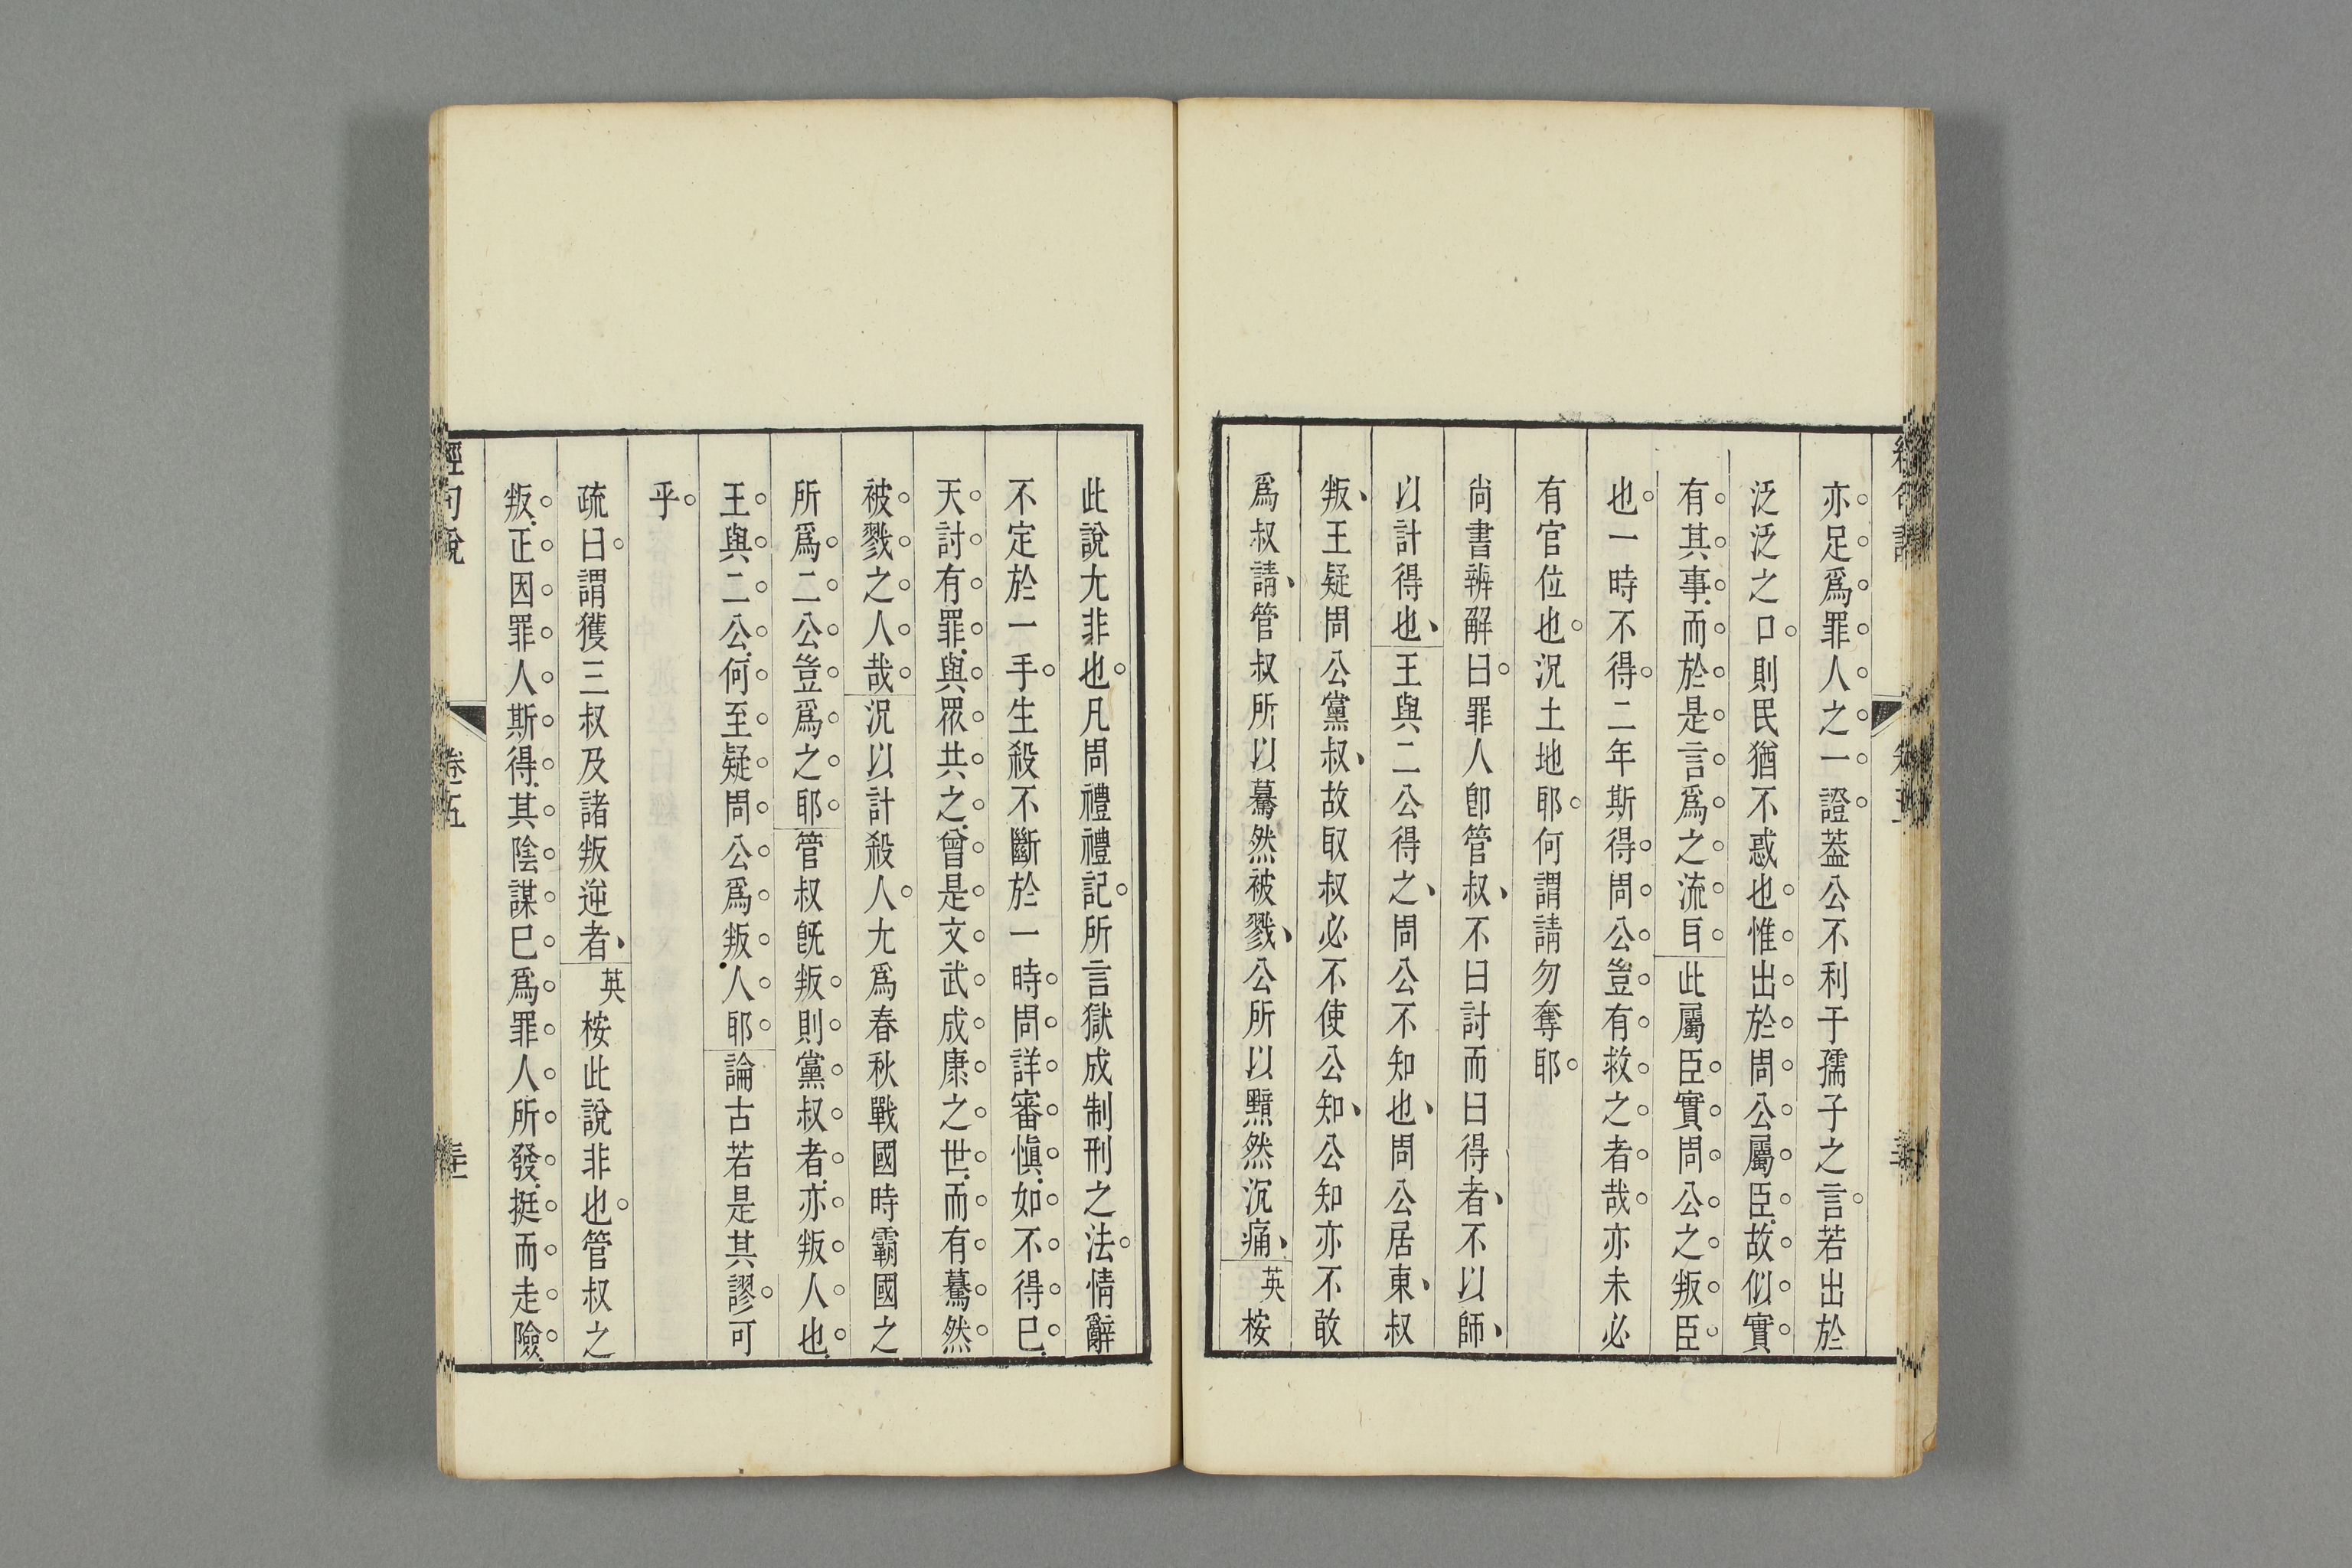 亦足爲罪人之一證葢公不利于孺子之言若出於
泛泛之口則民猶不惑也惟出於周公屬臣故似實
有其事而於是言爲之流目此屬臣實周公之叛臣
也一時不得二年斯得周公豈有救之者哉亦未必
有官位也況土地耶何謂請勿奪耶
尚書辨解曰罪人卽管叔不曰討而曰得者不以師
以計得也王與二公得之周公不知也周公居東叔
叛王疑周公黨叔故取叔必不使公知公知亦不敢
爲叔請管叔所以驀然被戮公所以黯然沉痛英桉
此說尢非也凡周禮禮記所言獄成制刑之法情辭
不定於一手生殺不斷於一時周詳審愼如不得已
天討有罪與眾共之曾是文武成康之世而有驀然
被戮之人哉況以計殺人尢爲春秋戰國時霸國之
所爲二公豈爲之耶管叔旣叛則黨叔者亦叛人也
王與二公何至疑周公爲叛人耶論古若是其謬可
乎
疏曰謂獲三叔及諸叛逆者英桉此說非也管叔之
叛正因罪人斯得其陰謀已爲罪人所發挺而走險
經句說
卷五